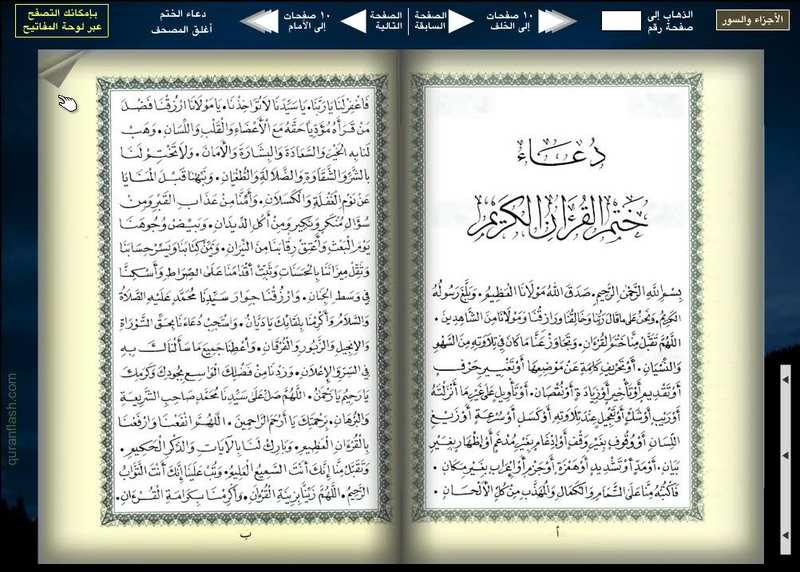 الأجزاء والسور
الذهاب إلى
صفحة رقم
١٠ صفحات
إلى الخلف
الصفحة
السابقة
الصفحة
التالية
١٠ صفحات
إلى الأمام
دعاء الختم
أغلق المصحف
بإمكانك التصفح
عبر لوحة المفاتيح
دُعَاء
خَتْمِ القُرْآنِ الكَرِيْمِ
بِسْمِ اللهِ الرَّحْمٰنِ الرَّحِيْمِ. صَدَقَ اللهُ مَوْلَانَا العَظِيْمُ. وَبَلَّغَ رَسُوْلُهُ
الكَرِيْمُ. وَنَحْنُ عَلَى مَا قَالَ رَبُّنَا وَخَالِقُنَا وَرَازِقُنَا وَمَوْلَانَا مِنَ الشَّاهِدِيْنَ.
اللّٰهُمَّ تَقَبَّلْ مِنَّا خَتْمَ القُرْآنِ. وَتَجَاوَزْ عَنَّا مَا كَانَ فِي تِلَاوَتِهِ مِنَ السَّهْوِ
وَالنِّسْيَانِ. أَوْ تَحْرِيْفِ كَلِمَةٍ عَنْ مَوْضِعِهَا أَوْ تَغْيِيْرِ حَرْفٍ.
أَوْ تَقْدِيْمٍ أَوْ تَأْخِيْرٍ أَوْ زِيَادَةٍ أَوْ نُقْصَانٍ. أَوْ تَأْوِيْلٍ عَلَى غَيْرِ مَا أَنْزَلْتَهُ
أَوْ رَيْبٍ أَوْ شَكٍّ أَوْ تَعْجِيْلٍ عِنْدَ تِلَاوَتِهِ أَوْ كَسَلٍ أَوْ سُرْعَةٍ أَوْ زَيْغِ
اللِّسَانِ أَوْ وُقُوْفٍ بِغَيْرِ وَقْفٍ أَوْ إِدْغَامٍ بِغَيْرِ مُدْغَمٍ أَوْ إِظْهَارٍ بِغَيْرِ
بَيَانٍ. أَوْ مَدٍّ أَوْ تَشْدِيْدٍ أَوْ هَمْزَةٍ أَوْ جَزْمٍ أَوْ إِعْرَابٍ بِغَيْرِ مَكَانٍ.
فَاكْتُبْهُ مِنَّا عَلَى التَّمَامِ وَالكَمَالِ وَالمُهَذَّبِ مِنْ كُلِّ الأَلْحَانِ.
أ
فَاغْفِرْ لَنَا يَا رَبَّنَا. يَا سَيِّدَنَا لَا تُؤَاخِذْنَا. يَا مَوْلَانَا ارْزُقْنَا فَضْلَ
مَنْ قَرَأَهُ مُؤَدِّيًا حَقَّهُ مَعَ الأَعْضَاءِ وَالقَلْبِ وَاللِّسَانِ. وَهَبْ
لَنَا بِهِ الخَيْرَ وَالسَّعَادَةَ وَالبِشَارَةَ وَالأَمَانَ. وَلَا تَخْتِمْ لَنَا
بِالشَّرِّ وَالشَّقَاوَةِ وَالضَّلَالَةِ وَالطُّغْيَانِ. وَنَبِّهْنَا قَبْلَ المَنَايَا
عَنْ نَوْمِ الغَفْلَةِ وَالكَسَلَانِ. وَأَمِّنَّا مِنْ عَذَابِ القَبْرِ وَمِنْ
سُؤَالِ مُنْكَرٍ وَنَكِيْرٍ وَمِنْ أَكْلِ الدِّيْدَانِ. وَبَيِّضْ وُجُوْهَنَا
يَوْمَ البَعْثِ وَأَعْتِقْ رِقَابَنَا مِنَ النِّيْرَانِ. وَيَمِّنْ كِتَابَنَا وَيَسِّرْ حِسَابَنَا
وَثَقِّلْ مِيْزَانَنَا بِالحَسَنَاتِ وَثَبِّتْ أَقْدَامَنَا عَلَى الصِّرَاطِ وَأَسْكِنَّا
فِي وَسَطِ الجِنَانِ. وَارْزُقْنَا جِوَارَ سَيِّدِنَا مُحَمَّدٍ عَلَيْهِ الصَّلَاةُ
وَالسَّلَامُ وَأَكْرِمْنَا بِلِقَائِكَ يَا دَيَّانُ. وَاسْتَجِبْ دُعَاءَنَا بِحَقِّ التَّوْرَاةِ
وَالإِنْجِيْلِ وَالزَّبُوْرِ وَالفُرْقَانِ. وَأَعْطِنَا جَمِيْعَ مَا سَأَلْنَاكَ بِهِ
فِي السِّرِّ وَالإِعْلَانِ. وَزِدْنَا مِنْ فَضْلِكَ الوَاسِعِ بِجُوْدِكَ وَكَرَمِكَ
يَا رَحِيْمُ يَا رَحْمٰنُ. اللّٰهُمَّ صَلِّ عَلَى سَيِّدِنَا مُحَمَّدٍ صَاحِبِ الشَّرِيْعَةِ
وَالبُرْهَانِ. بِرَحْمَتِكَ يَا أَرْحَمَ الرَّاحِمِيْنَ. اللّٰهُمَّ انْفَعْنَا وَارْفَعْنَا
بِالقُرْآنِ العَظِيْمِ. وَبَارِكْ لَنَا بِالآيَاتِ وَالذِّكْرِ الحَكِيْمِ.
وَتَقَبَّلْ مِنَّا إِنَّكَ أَنْتَ السَّمِيْعُ العَلِيْمُ. وَتُبْ عَلَيْنَا إِنَّكَ أَنْتَ التَّوَّابُ
الرَّحِيْمُ. اللّٰهُمَّ زَيِّنَّا بِزِيْنَةِ القُرْآنِ. وَأَكْرِمْنَا بِكَرَامَةِ القُرْآنِ.
ب
quranflash.com